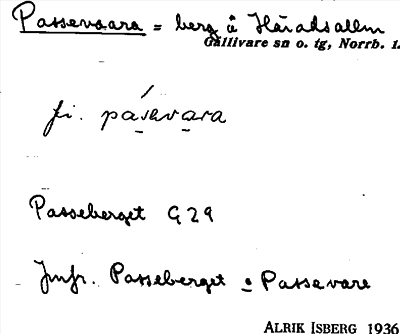 Passevaara = berg å Häradsallm
Gällivare sn o. tg, Norrb. l.
fi. pásevara
Passeberget G 29
Jmfr. Passeberget o Passevare
ALRIK ISBERG 1936